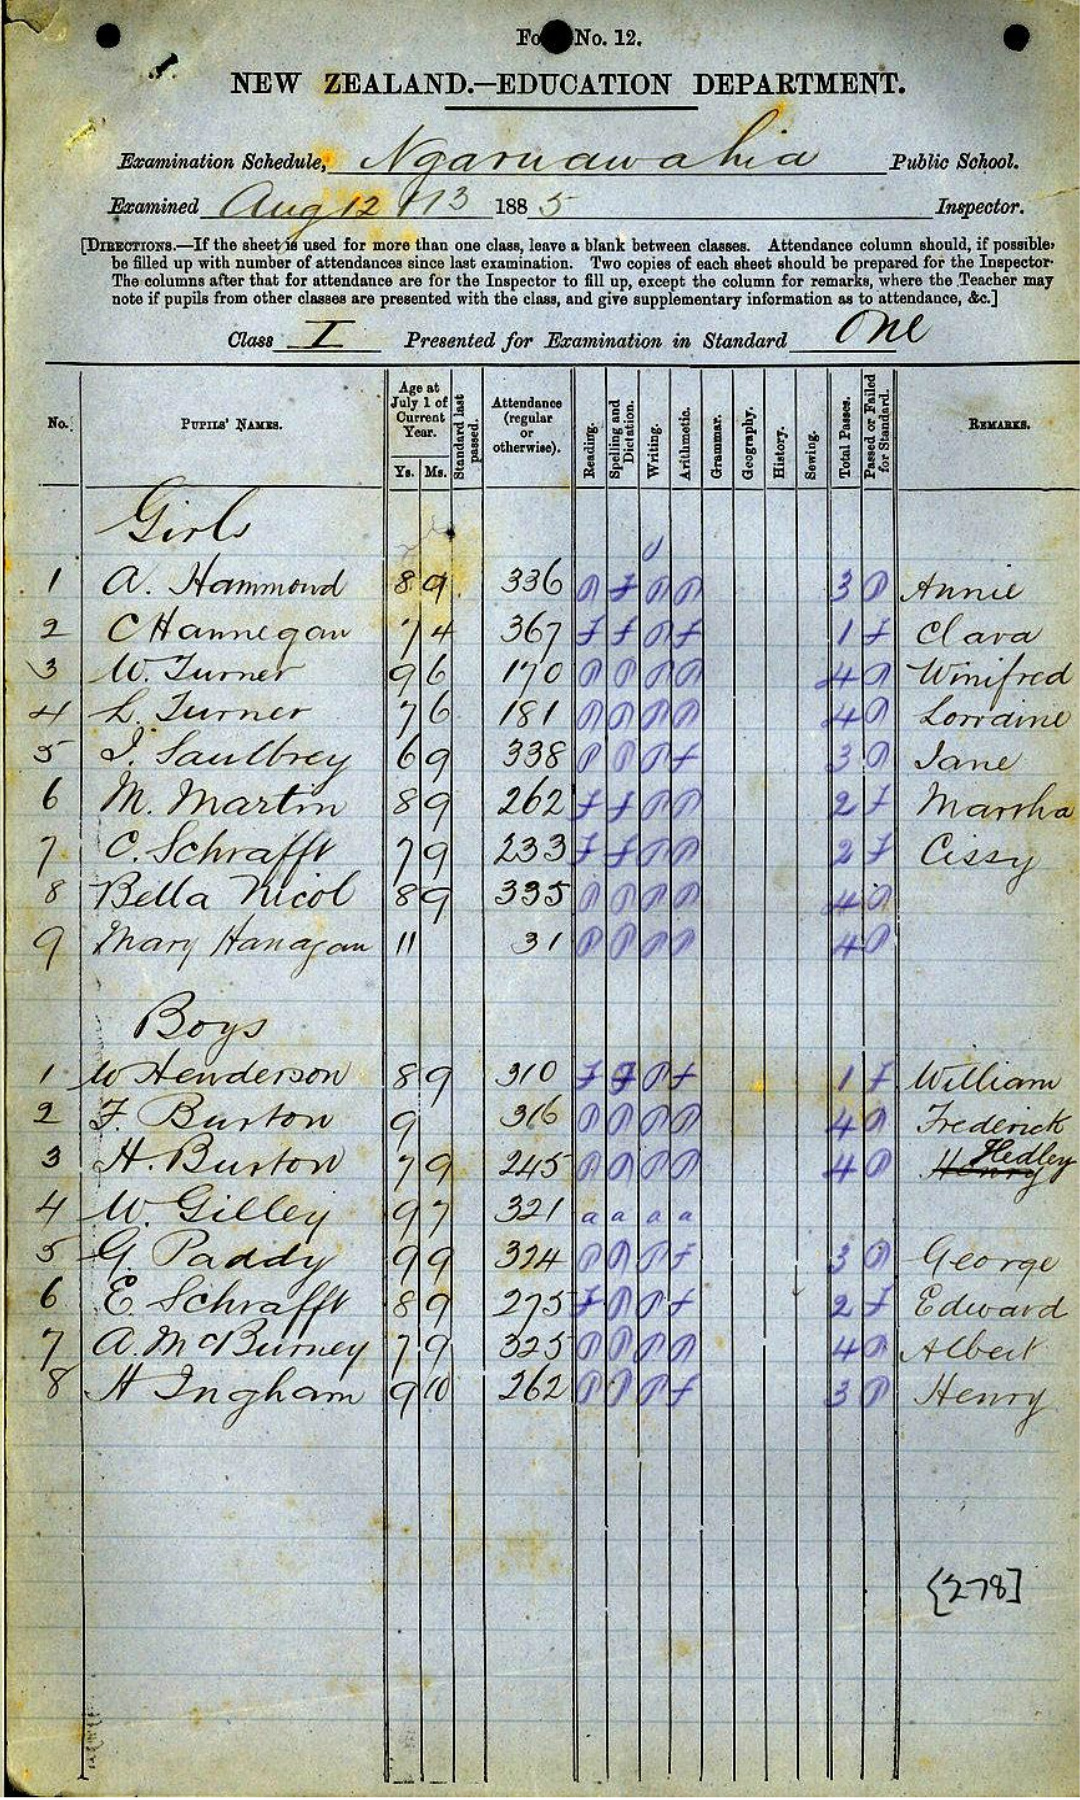 Fo No. 12.
NEW ZEALAND.—EDUCATION DEPARTMENT.
Examination Schedule, Ngaruawahia Public School.
Examined Aug 12 & 13 1885 Inspector.
[DIRECTIONS.—If the sheet is used for more than one class, leave a blank between classes. Attendance column should, if possible,
be filled up with number of attendances since last examination. Two copies of each sheet should be prepared for the Inspector.
The columns after that for attendance are for the Inspector to fill up, except the column for remarks, where the Teacher may
note if pupils from other classes are presented with the class, and give supplementary information as to attendance, &c.]
Class I Presented for Examination in Standard One
No. PUPILS' NAMES. Age at July 1 of Current Year. Ys. Ms. Standard last passed. Attendance (regular or otherwise). Reading. Spelling and Dictation. Writing. Arithmetic. Grammar. Geography. History. Sewing. Total Passes. Passed or Failed for Standard. REMARKS.
Girls
1 A. Hammond 8 9 336 P f P P 3 P Annie
2 C Hannegan 7 4 367 f f P f 1 f Clara
3 W. Turner 9 6 170 P P P P 4 P Winifred
4 L. Turner 7 6 181 P P P P 4 P Lorraine
5 J. Saulbrey 6 9 338 P P P f 3 P Jane
6 M. Martin 8 9 262 f f P P 2 f Martha
7 C. Schrafft 7 9 233 f f P P 2 f Cissy
8 Bella Nicol 8 9 335 P P P P 4 P
9 Mary Hanagan 11 31 P P P P 4 P
Boys
1 W Henderson 8 9 310 f f P f 1 f William
2 F. Burton 9 316 P P P P 4 P Frederick
3 H. Burton 7 9 245 P P P P 4 P Henry Hedley
4 W. Gilley 9 7 321 a a a a
5 G. Paddy 9 9 324 P P P f 3 P George
6 E. Schrafft 8 9 275 f P P f 2 f Edward
7 A. McBurney 7 9 325 P P P P 4 P Albert
8 H Ingham 9 10 262 P P P f 3 P Henry
{278]